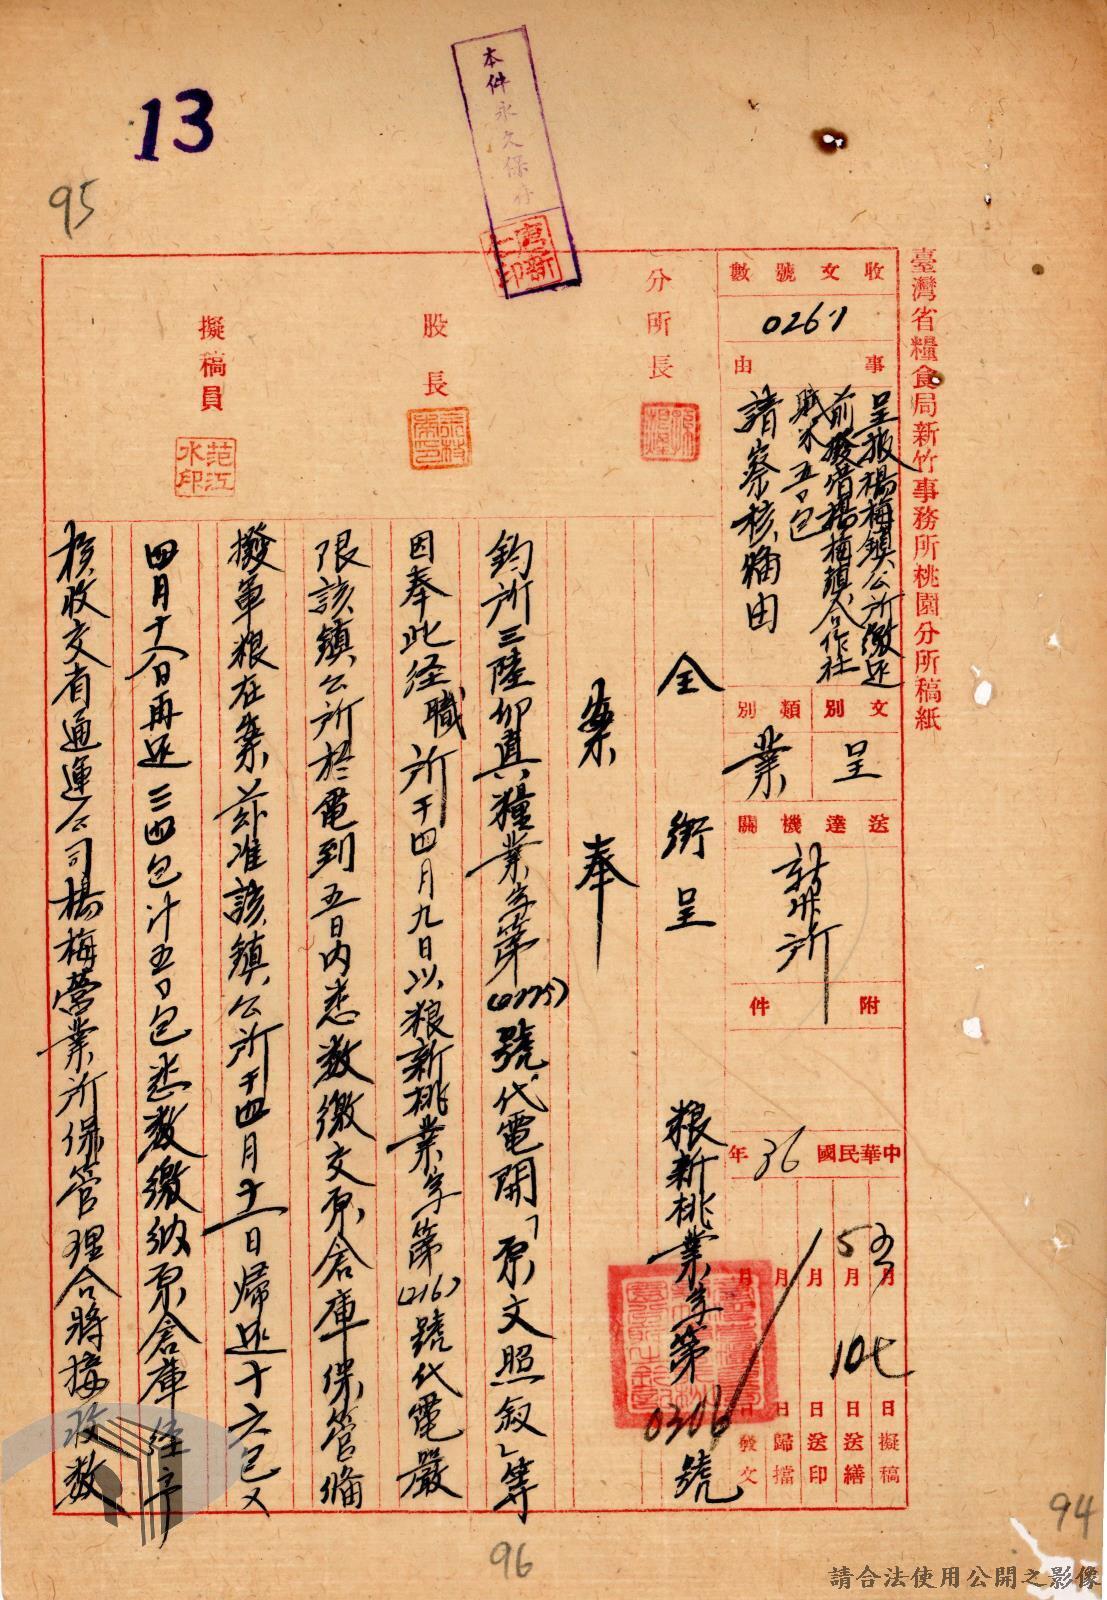 臺灣省糧食局新竹事務所桃園分所稿紙
本件永久保存
13
95
收文號數
0261
事由
呈報楊梅鎮公所繳還
前撥借楊梅鎮合作社
賦米五〇包
請察核備由
文別
呈
類別
業
送達機關
新竹所
附件
中華民國36年
五月七日擬稿
5月10日送繕
月日送印
月日歸檔
月日發文
分所長
股長
擬稿員
范江水印
全銜呈 粮新桃業字第0306號
案奉
鈞所三陸卯真糧業字第(0225)號代電開「原文照敘」等
因奉此経職所于四月九日以粮新桃業字第(216)號代電嚴
限該鎮公所於電到五日內悉数繳交原倉庫保管備
撥軍粮在案茲准該鎮公所于四月十一日歸还十六包又
四月十八日再还三四包计五〇包悉数繳納原倉庫経予
核收交有通運公司楊梅營業所保管理合將接收数
96
94
請合法使用公開之影像